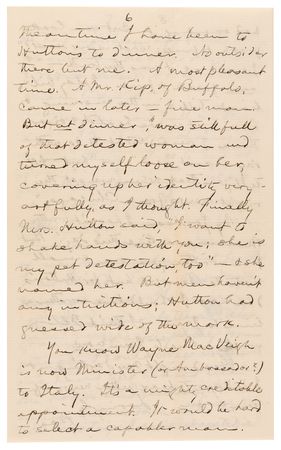 6
Meantime I have been to
Hutton's to dinner. No outsider
there but me. A most pleasant
time. A Mr. Kip, of Buffalo,
came in later — fine man.
But at dinner, I was still full
of that detested woman and
turned myself loose on her,
covering up her identity very
artfully, as I thought. Finally
Mrs. Hutton said, "I want to
shake hands with you; she is
my pet detestation, too" — & she
named her. But men haven't
any intuitions; Hutton had
guessed wide of the mark.
You know Wayne MacVeigh
is now Minister (or Ambassador?)
to Italy. It's a mighty creditable
appointment. It would be hard
to select a capabler man.